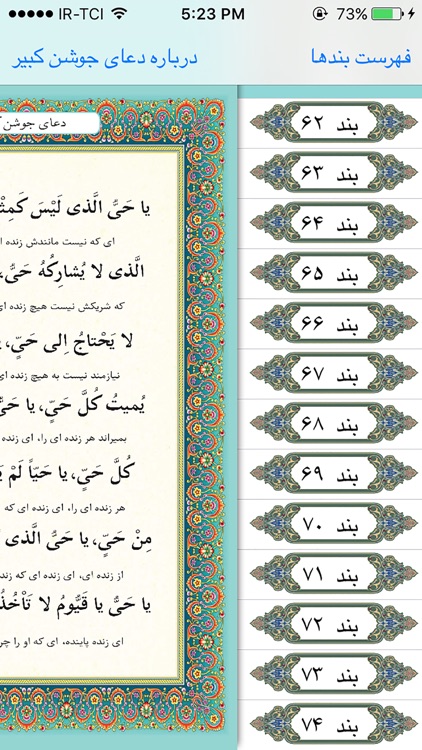 IR-TCI 5:23 PM 73%
فهرست بندها
درباره دعای جوشن کبیر
دعای جوشن
یا حَیُّ الَّذی لَیْسَ کَمِثْ
ای که نیست مانندش زنده ا
الَّذی لا یُشارِکُهُ حَیٌّ،
که شریکش نیست هیچ زنده ای
لا یَحْتاجُ اِلی حَیٍّ،
نیازمند نیست به هیچ زنده ای
یُمیتُ کُلَّ حَیٍّ، یا حَیُّ
بمیراند هر زنده ای را، ای زنده
کُلَّ حَیٍّ، یا حَیّاً لَمْ
هر زنده ای را، ای زنده ای که
مِنْ حَیٍّ، یا حَیُّ الَّذی
از زنده ای، ای زنده ای که زند
یا حَیُّ یا قَیُّومُ لا تَأْخُذُ
ای زنده پاینده، ای که او را چر
بند ۶۲
بند ۶۳
بند ۶۴
بند ۶۵
بند ۶۶
بند ۶۷
بند ۶۸
بند ۶۹
بند ۷۰
بند ۷۱
بند ۷۲
بند ۷۳
بند ۷۴